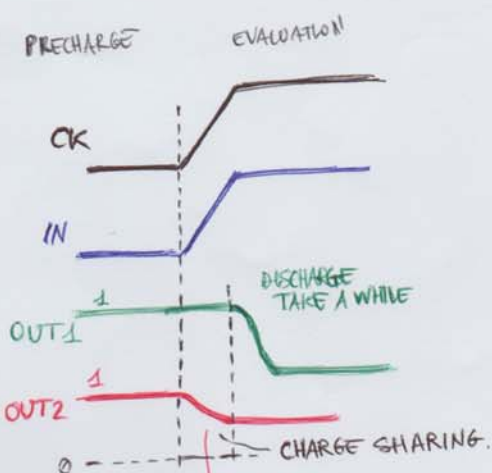 PRECHARGE EVALUATION
CK
IN
1
DISCHARGE
TAKE A WHILE
OUT1
1
OUT2
0
CHARGE SHARING.